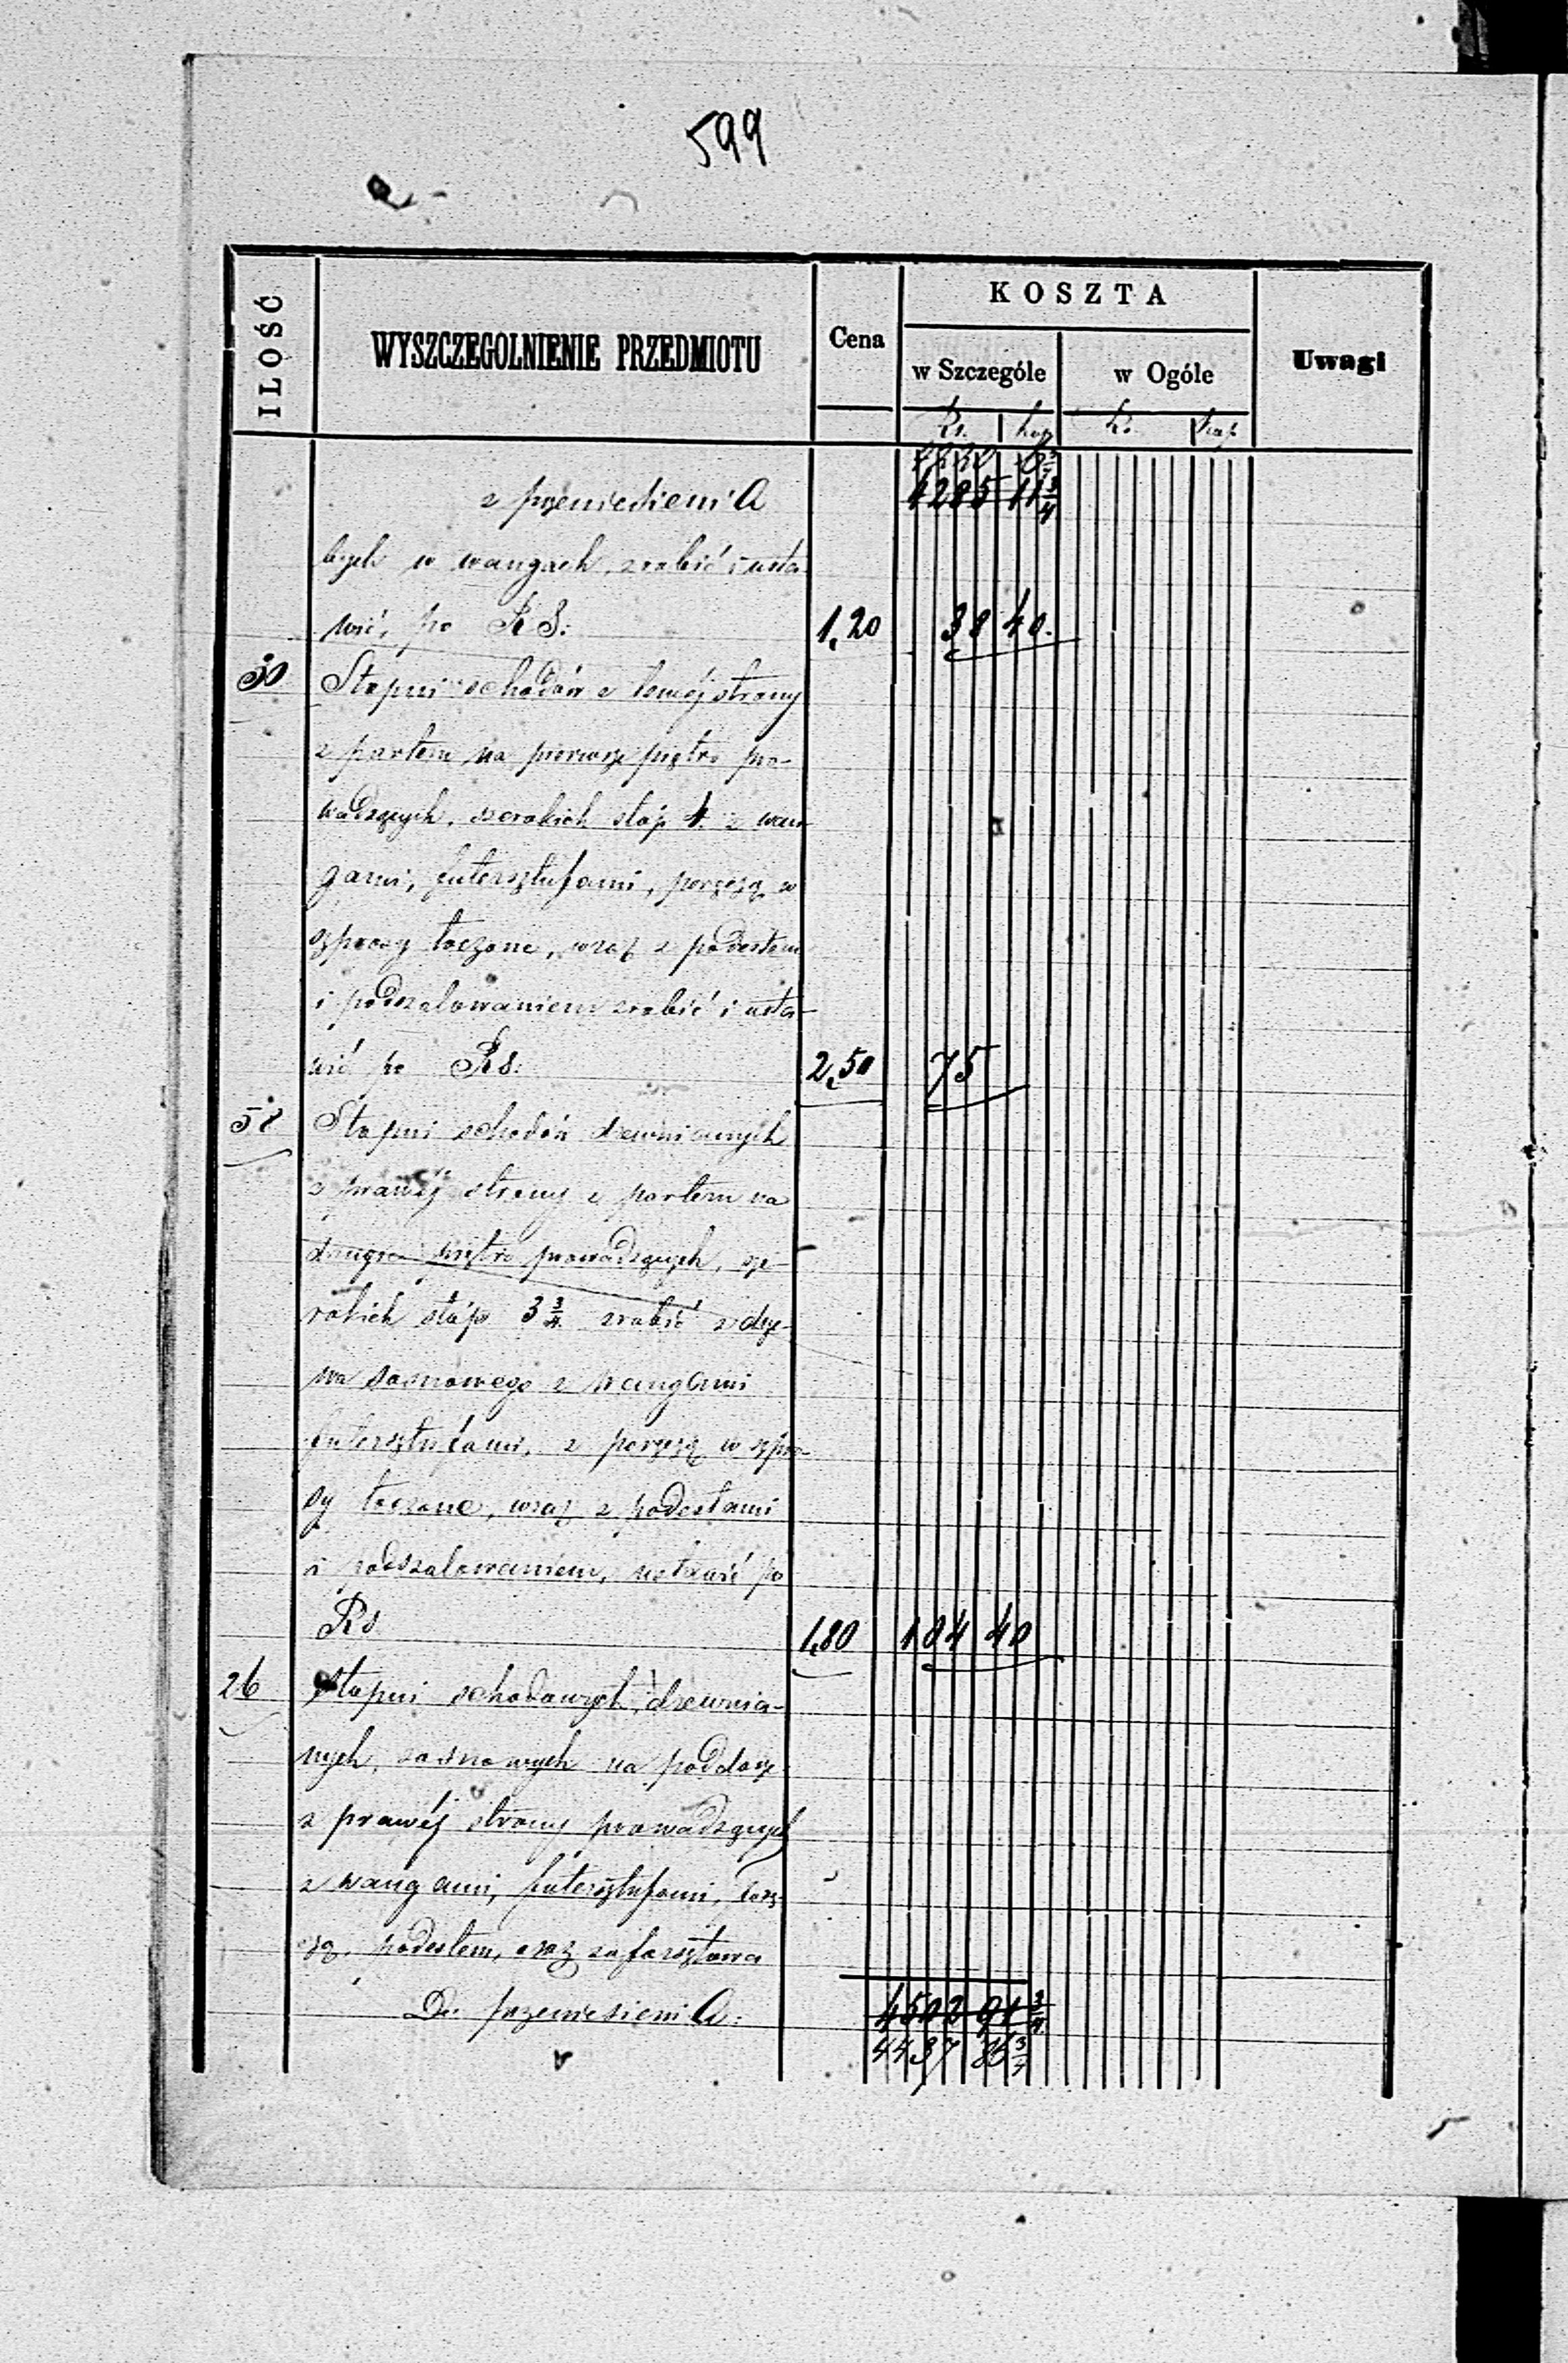 599
ILOŚĆ WYSZCZEGOLNIENIE PRZEDMIOTU Cena KOSZTA Uwagi
w Szczególe w Ogóle
Rs. kop Rs. kop
z przeniesieniA 4285 11 3/4
w wangach, zrobić i usta-
wić, po RS: 1,20 38 40.
30 Stopni schodów z lewej strony
z parteru na pierwsze piętro pro-
wadzących, szerokich stóp 4. z wan-
gami, futersztufami, poręczą w
szprosy toczone, wraz z podestem
i podszalowaniem zrobić i usta-
wić po Rs: 2,50 75
58 Stopni schodów drewnianych
z prawéj strony z parteru na
drugie piętro prowadzących, sze-
rokich stóp 3 3/4 zrobić z drze-
wa sosnowego z wangami
futersztufami, z poręczą w szpro-
sy toczone, wraz z podestami
i podszalowaniem, ustawić po
Rs 1,80 104 40
26 Stopni schodowych, drewnia-
nych, sosnowych na poddasze
z prawéj strony prowadzących
z wangami, futersztufami, porę-
czą, podestem, oraz zaforsztowa
Do przeniesieniA: 4502 91 3/4
4437 86 3/4